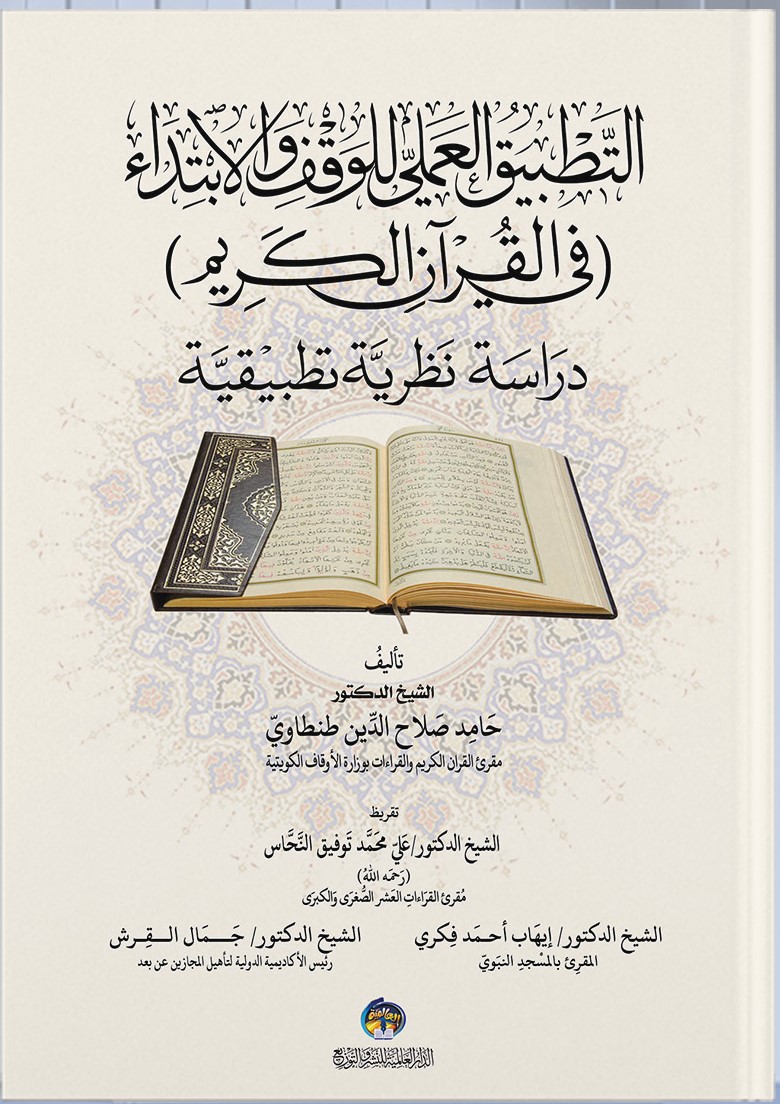 التَّطْبِيقُ العَمَلِيّ لِلوَقْفِ وَالابْتِدَاء
(في القُرْآنِ الكَرِيم)
دِرَاسَة نَظَرِيَّة تَطْبِيْقيَّة
تأليفُ
الشيخ الدكتور
حَامِد صَلاح الدِّين طنطاويّ
مقرئ القران الكريم والقراءات بوزارة الأوقاف الكويتية
تقريظ
الشيخ الدكتور/عَليّ محَمَّد تَوفيق النَّحَّاس
(رَحمَه اللهُ)
مُقرئ القرَاءاتِ العَشر الصُّغرَى وَالكبرَى
الشيخ الدكتور/ إيهَاب أحـمَد فِكري
المقرِئ بالمسْجدِ النبَويّ
الشيخ الدكتور/ جَـــمَال الــقِــرش
رئيس الأكاديمية الدولية لتأهيل المجازين عن بعد
العالمية
الدار العالمية للنشر والتوزيع